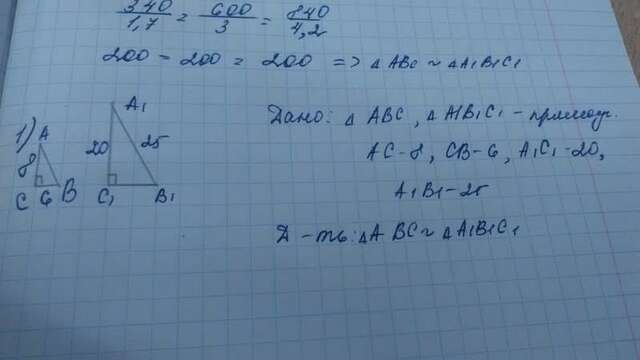 340/1,7 = 600/3 = 840/4,2
200 = 200 = 200 => △ ABC ~ △ A1B1C1
1)
A
8
C 6 B
A1
20 25
C1 B1
Дано: △ ABC, △ A1B1C1 - прямоуг.
AC-8, CB-6, A1C1-20,
A1B1-25
Д-ть: △ABC ~ △A1B1C1